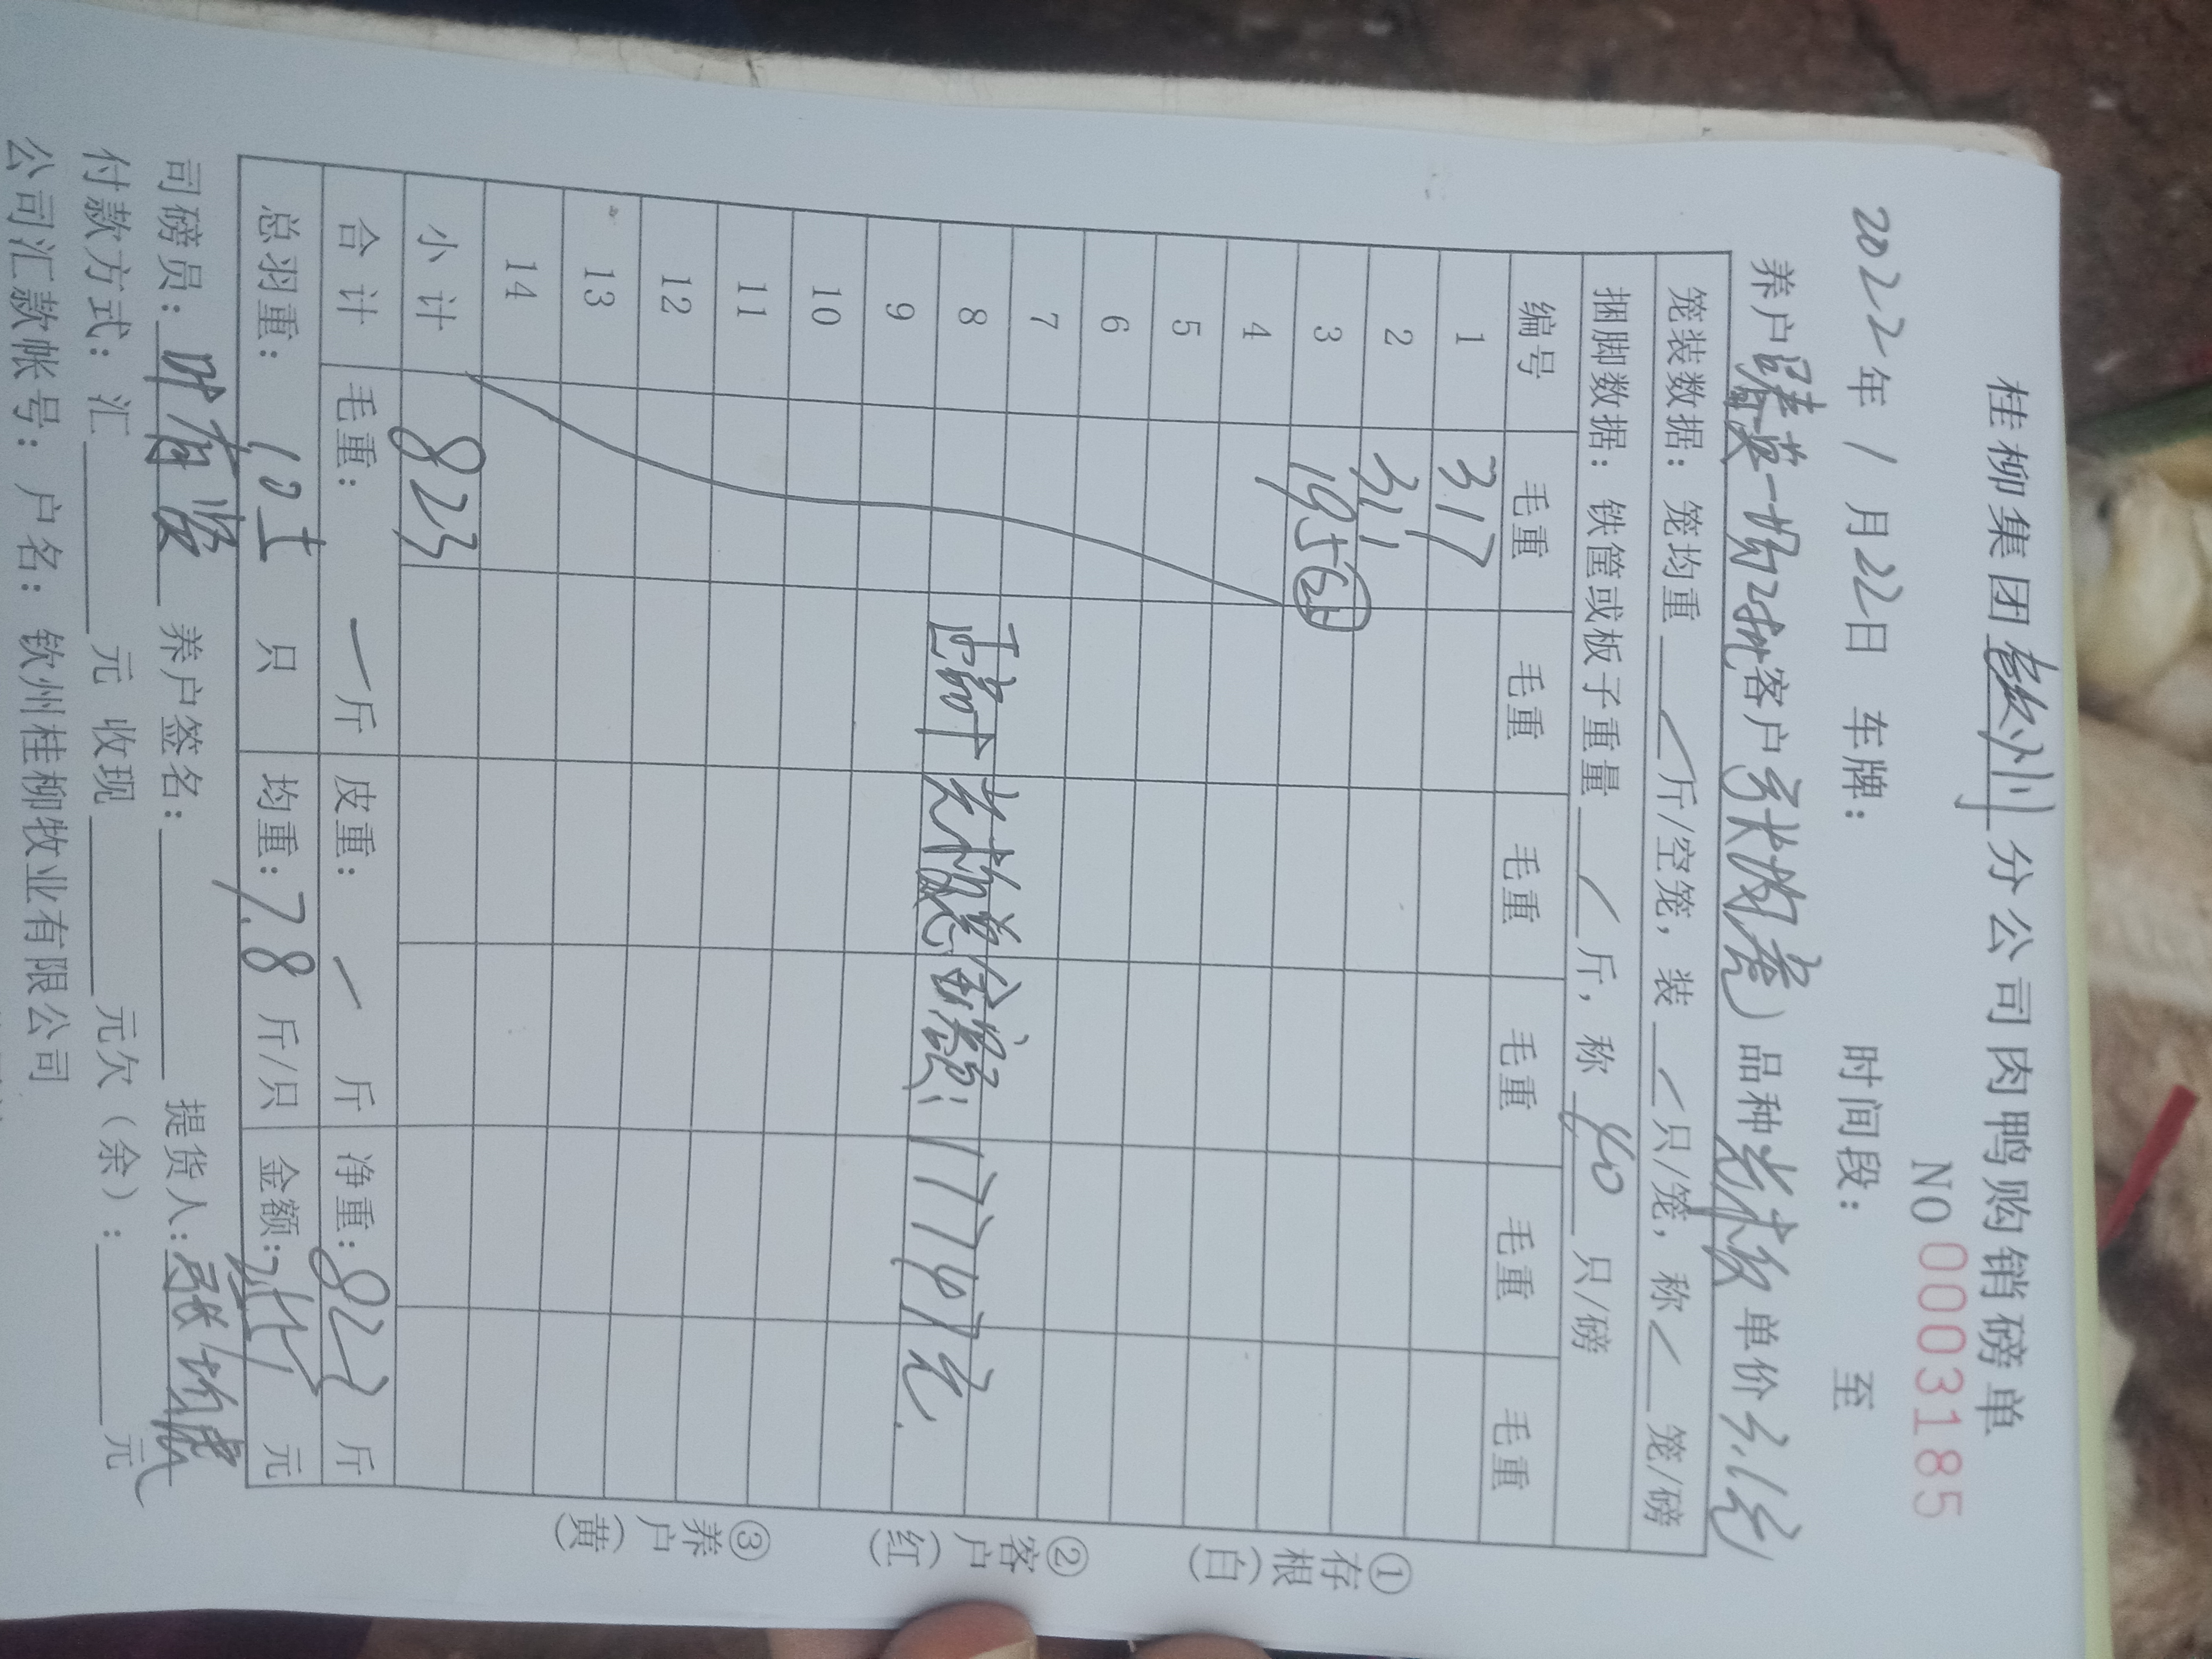 桂柳集团钦州分公司肉鸭购销磅单
NO 0003185
2022年1月22日 车牌： 时间段： 至
养户 英一场 批客户 ）品种 单价
笼装数据：笼均重 斤/空笼，装 只/笼，称 笼/磅
捆脚数据：铁筐或板子重量 斤，称 40 只/磅
编号 毛重 毛重 毛重 毛重 毛重 毛重
1 317
2 311
3 195
4
5
6
7
8 金额：1774.1元
9
10
11
12
13
14
小计 823
合计 毛重： 斤 皮重： 斤 净重：823 斤
总羽重： 只 均重：7.8 斤/只 金额： 元
司磅员： 养户签名： 提货人：
付款方式：汇 元 收现 元欠（余）： 元
公司汇款帐号：户名：钦州桂柳牧业有限公司
①存根（白） ②客户（红） ③养户（黄）